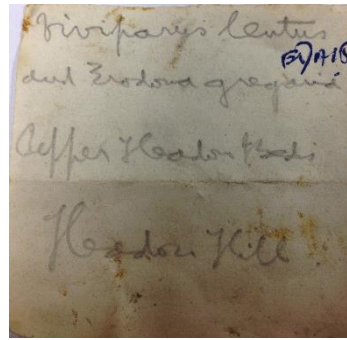 Viviparus lentus
and Erodona gregaria
Upper Headon Beds
Headon Hill